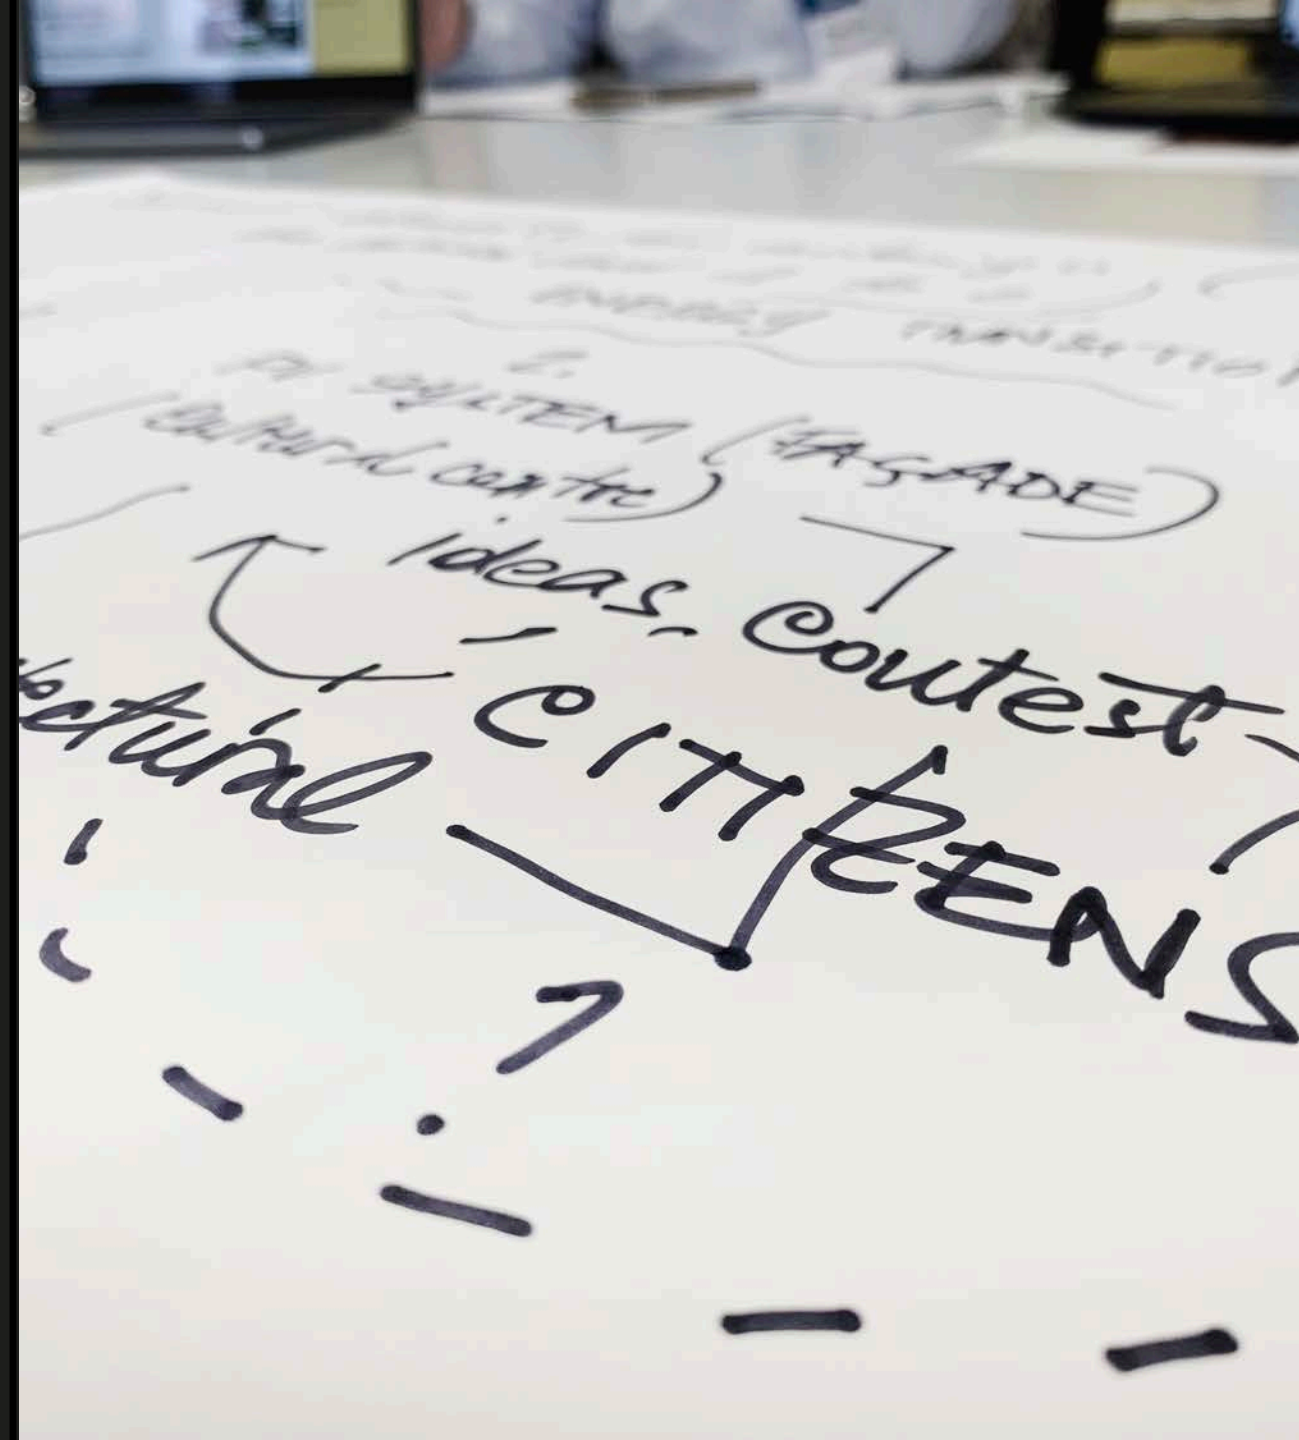 ENERGY TRANSITION
2.
PV SYSTEM (FAÇADE)
(cultural centre)
ideas contest
CITIZENS
ectural
?